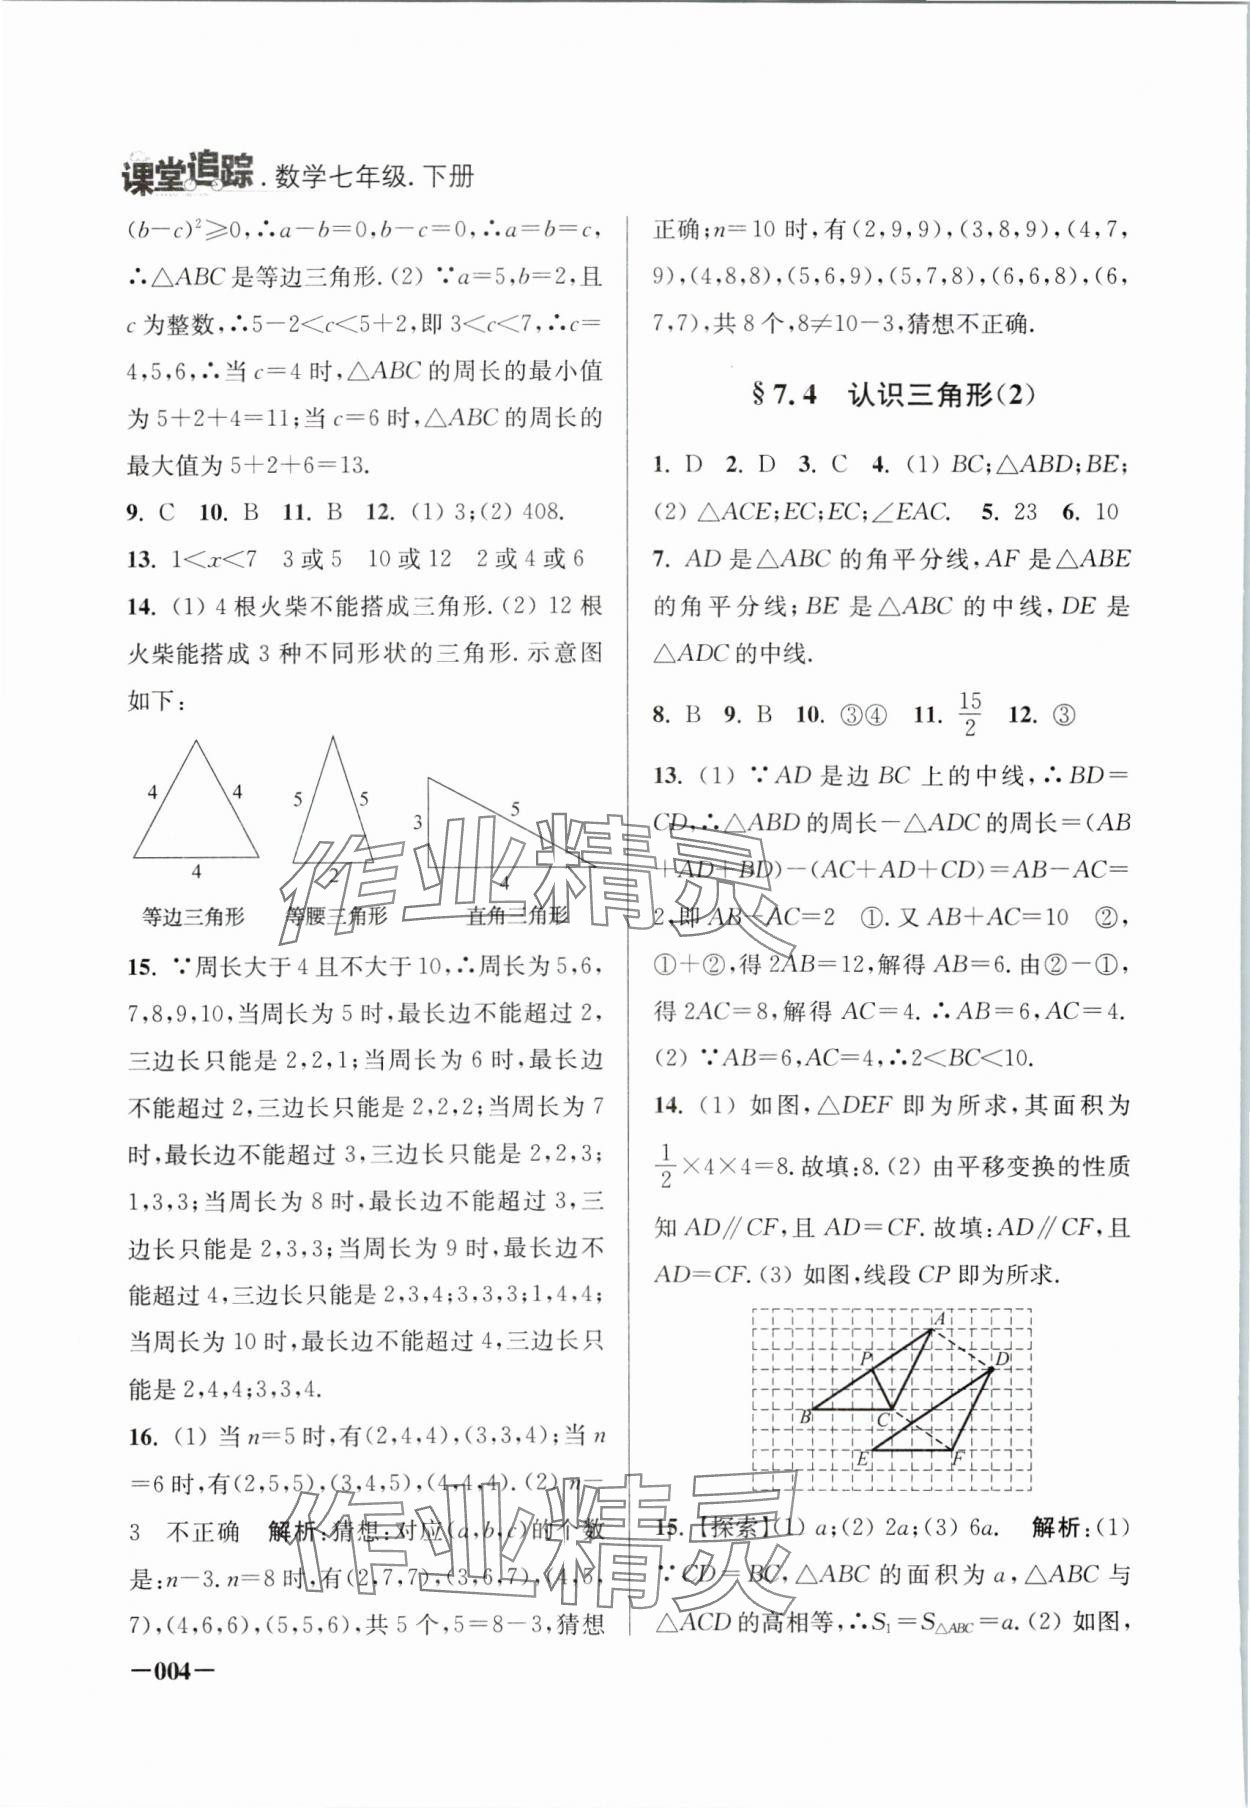 课堂追踪.数学七年级.下册
(b-c)²≥0,∴a-b=0,b-c=0,∴a=b=c,
∴△ABC是等边三角形.(2) ∵a=5,b=2,且
c为整数,∴5-2<c<5+2,即3<c<7,∴c=
4,5,6,∴当c=4时,△ABC的周长的最小值
为5+2+4=11;当c=6时,△ABC的周长的
最大值为5+2+6=13.
9. C 10. B 11. B 12. (1) 3;(2) 408.
13. 1<x<7 3或5 10或12 2或4或6
14. (1) 4根火柴不能搭成三角形.(2) 12根
火柴能搭成3种不同形状的三角形.示意图
如下:
4 4 5 5 3 5
4 2 4
等边三角形 等腰三角形 直角三角形
15. ∵周长大于4且不大于10,∴周长为5,6,
7,8,9,10,当周长为5时,最长边不能超过2,
三边长只能是2,2,1;当周长为6时,最长边
不能超过2,三边长只能是2,2,2;当周长为7
时,最长边不能超过3,三边长只能是2,2,3;
1,3,3;当周长为8时,最长边不能超过3,三
边长只能是2,3,3;当周长为9时,最长边不
能超过4,三边长只能是2,3,4;3,3,3;1,4,4;
当周长为10时,最长边不能超过4,三边长只
能是2,4,4;3,3,4.
16. (1) 当n=5时,有(2,4,4),(3,3,4);当n
=6时,有(2,5,5),(3,4,5),(4,4,4).(2) n-
3 不正确 解析:猜想:对应(a,b,c)的个数
是:n-3.n=8时,有(2,7,7),(3,6,7),(4,5,
7),(4,6,6),(5,5,6),共5个,5=8-3,猜想
—004—
正确;n=10时,有(2,9,9),(3,8,9),(4,7,
9),(4,8,8),(5,6,9),(5,7,8),(6,6,8),(6,
7,7),共8个,8≠10-3,猜想不正确.
§7.4 认识三角形(2)
1. D 2. D 3. C 4. (1) BC;△ABD;BE;
(2) △ACE;EC;EC;∠EAC. 5. 23 6. 10
7. AD是△ABC的角平分线,AF是△ABE
的角平分线;BE是△ABC的中线,DE是
△ADC的中线.
8. B 9. B 10. ③④ 11. 15/2 12. ③
13. (1) ∵AD是边BC上的中线,∴BD=
CD,∴△ABD的周长-△ADC的周长=(AB
+AD+BD)-(AC+AD+CD)=AB-AC=
2,即AB-AC=2 ①.又AB+AC=10 ②,
①+②,得2AB=12,解得AB=6.由②-①,
得2AC=8,解得AC=4.∴AB=6,AC=4.
(2) ∵AB=6,AC=4,∴2<BC<10.
14. (1) 如图,△DEF即为所求,其面积为
1/2×4×4=8.故填:8.(2) 由平移变换的性质
知AD∥CF,且AD=CF.故填:AD∥CF,且
AD=CF.(3) 如图,线段CP即为所求.
A
P D
B C
E F
15. 【探索】(1) a;(2) 2a;(3) 6a. 解析:(1)
∵CD=BC,△ABC的面积为a,△ABC与
△ACD的高相等,∴S₁=S△ABC=a.(2) 如图,
作业精灵
作业精灵